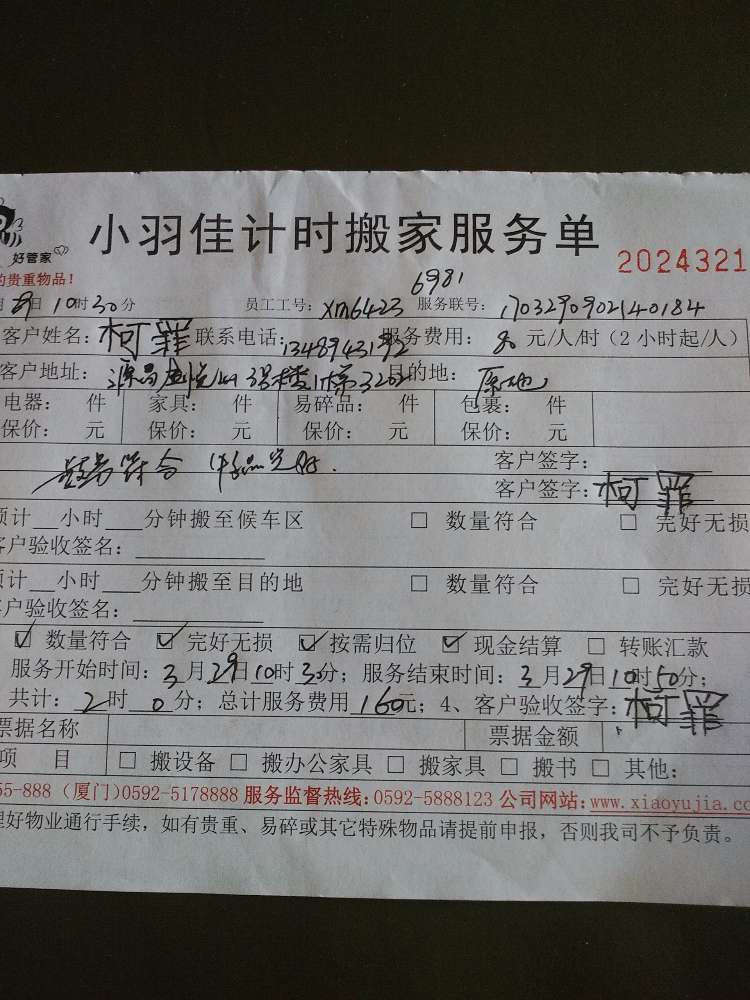 小羽佳计时搬家服务单
好管家
2024321
的贵重物品!
月29日10时30分 员工工号:xm6423 6981 服务联号:1703290902140184
客户姓名:柯罪 联系电话:1348943192 服务费用:80元/人/时(2小时起/人)
客户地址: 3号楼1梯3202 目的地:原地
电器: 件 家具: 件 易碎品: 件 包裹: 件
保价: 元 保价: 元 保价: 元 保价: 元
客户签字:
数量符合 物品完好.
客户签字:柯罪
预计__小时___分钟搬至候车区 □ 数量符合 □ 完好无损
客户验收签名:
预计__小时___分钟搬至目的地 □ 数量符合 □ 完好无损
客户验收签名:
☑ 数量符合 ☑ 完好无损 ☑ 按需归位 ☑ 现金结算 □ 转账汇款
服务开始时间:3月29日10时30分;服务结束时间:3月29日10时50分;
共计:2时0分;总计服务费用160元;4、客户验收签字:柯罪
票据名称 票据金额
项 目 □ 搬设备 □ 搬办公家具 □ 搬家具 □ 搬书 □ 其他:
55-888(厦门)0592-5178888 服务监督热线:0592-5888123 公司网站:www.xiaoyujia.co
理好物业通行手续,如有贵重、易碎或其它特殊物品请提前申报,否则我司不予负责。